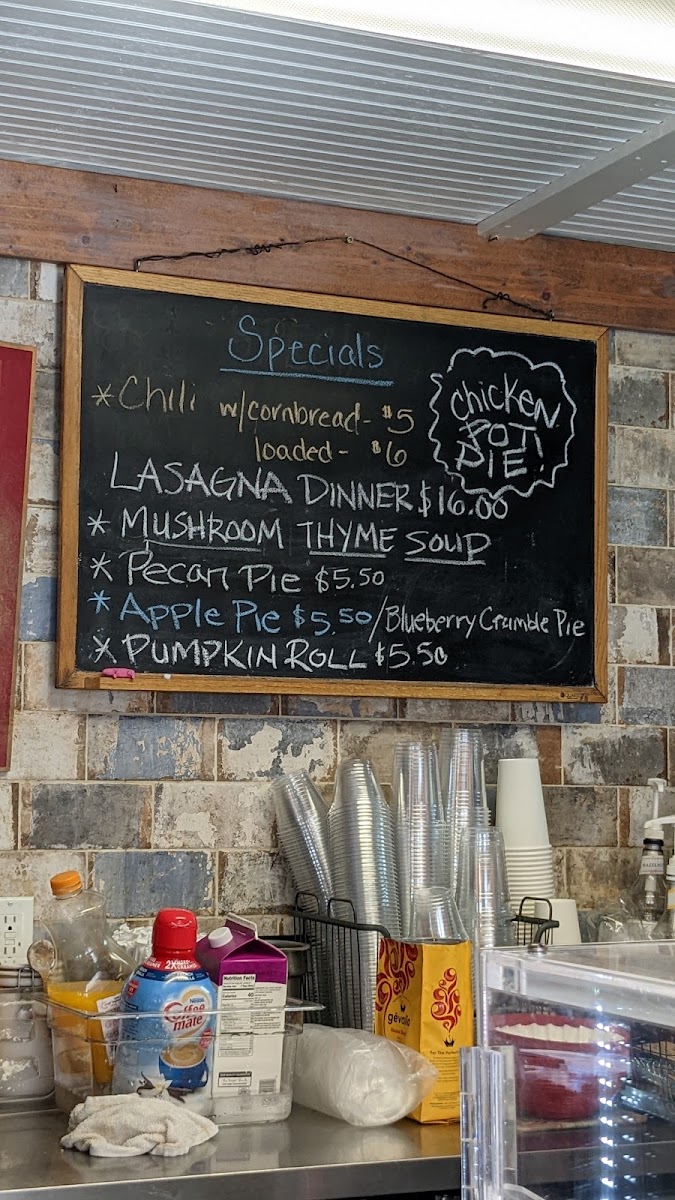 Specials
* Chili w/cornbread - $5
loaded - $6
CHICKEN
POT
PIE!
LASAGNA DINNER $16.00
* MUSHROOM THYME SOUP
* Pecan Pie $5.50
* Apple Pie $5.50/Blueberry Crumble Pie
* PUMPKIN ROLL $5.50
2X
Nestle
Coffee
mate
Nutrition Facts
Calories 40
gevalia